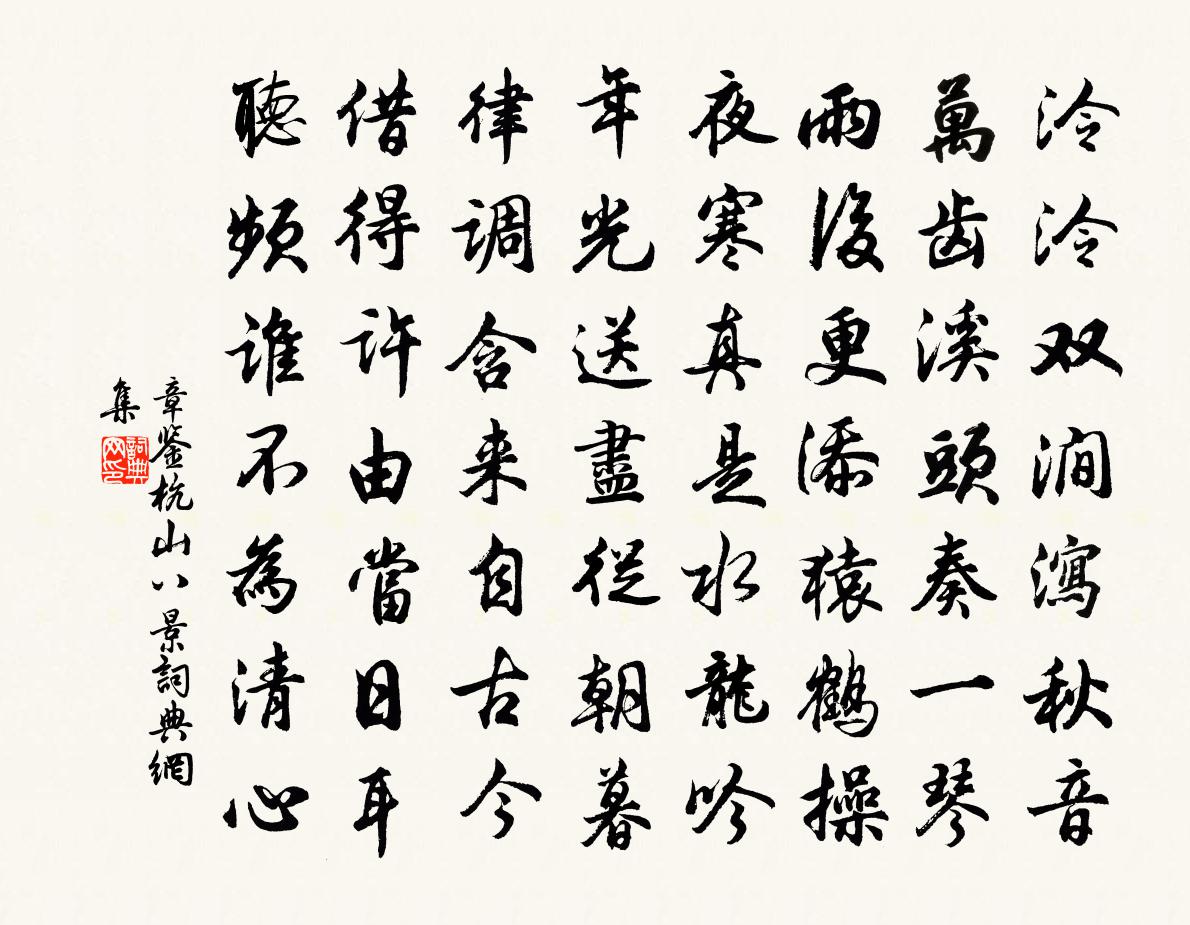 泠泠双澗瀉秋音
萬齿溪頭奏一琴
雨後更添猿鶴操
夜寒真是水龍吟
年光送盡從朝暮
律调含来自古今
借得许由當日耳
聽频谁不為清心
章鉴杭山八景詞典網
集
詞典
网印